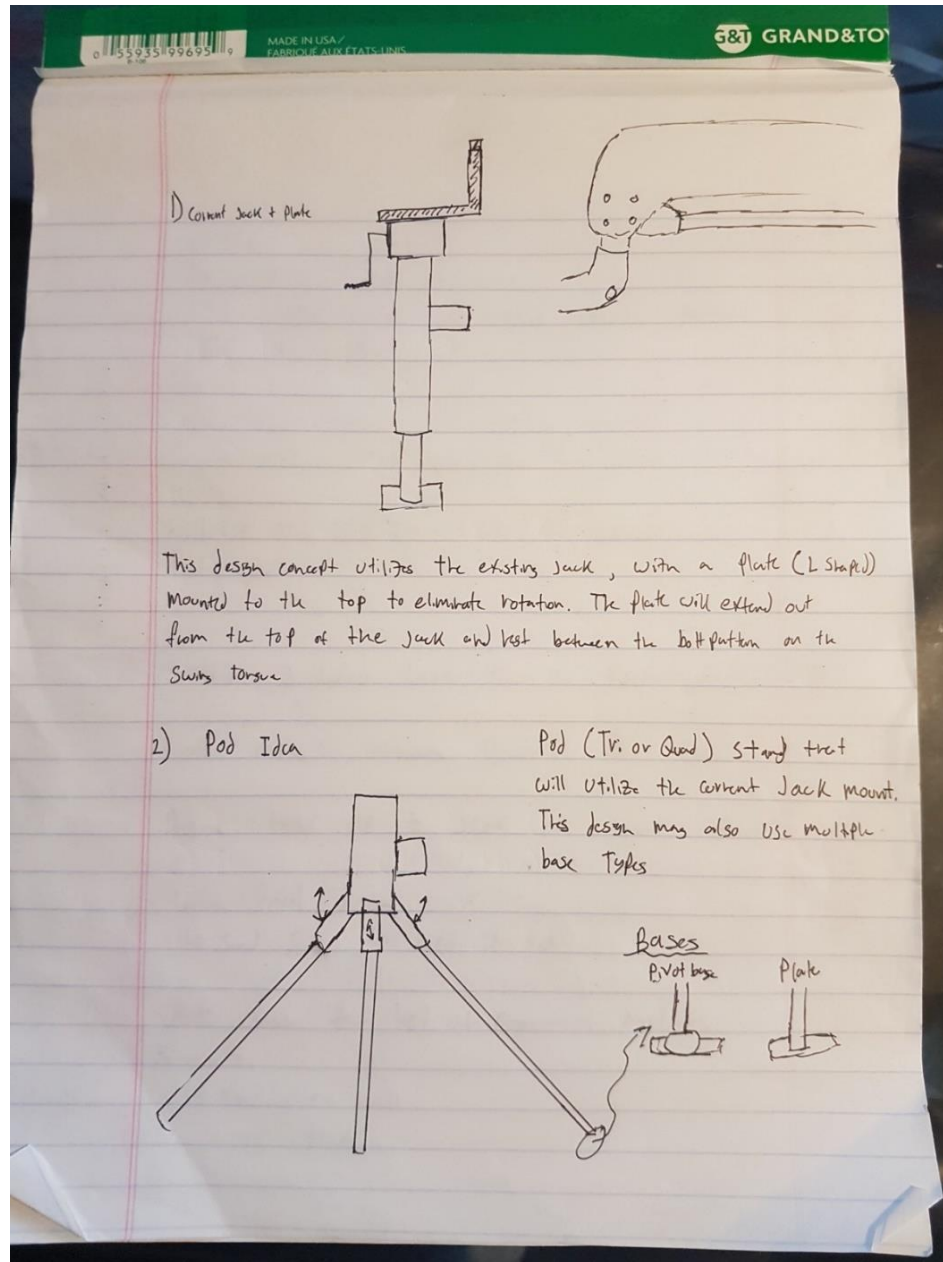 G&T GRAND&TOY
MADE IN USA/
FABRIQUÉ AUX ÉTATS-UNIS
0 55935 99695 9
1) Current Jack & Plate
This design concept utilizes the existing Jack, with a Plate (L Shaped)
mounted to the top to eliminate rotation. The Plate will extend out
from the top of the Jack and rest between the bolt pattern on the
Swing torque
2) Pod Idea
Pod (Tri or Quad) stand that
will utilize the current Jack mount.
This design may also use multiple
base Types
Bases
Pivot base
Plate